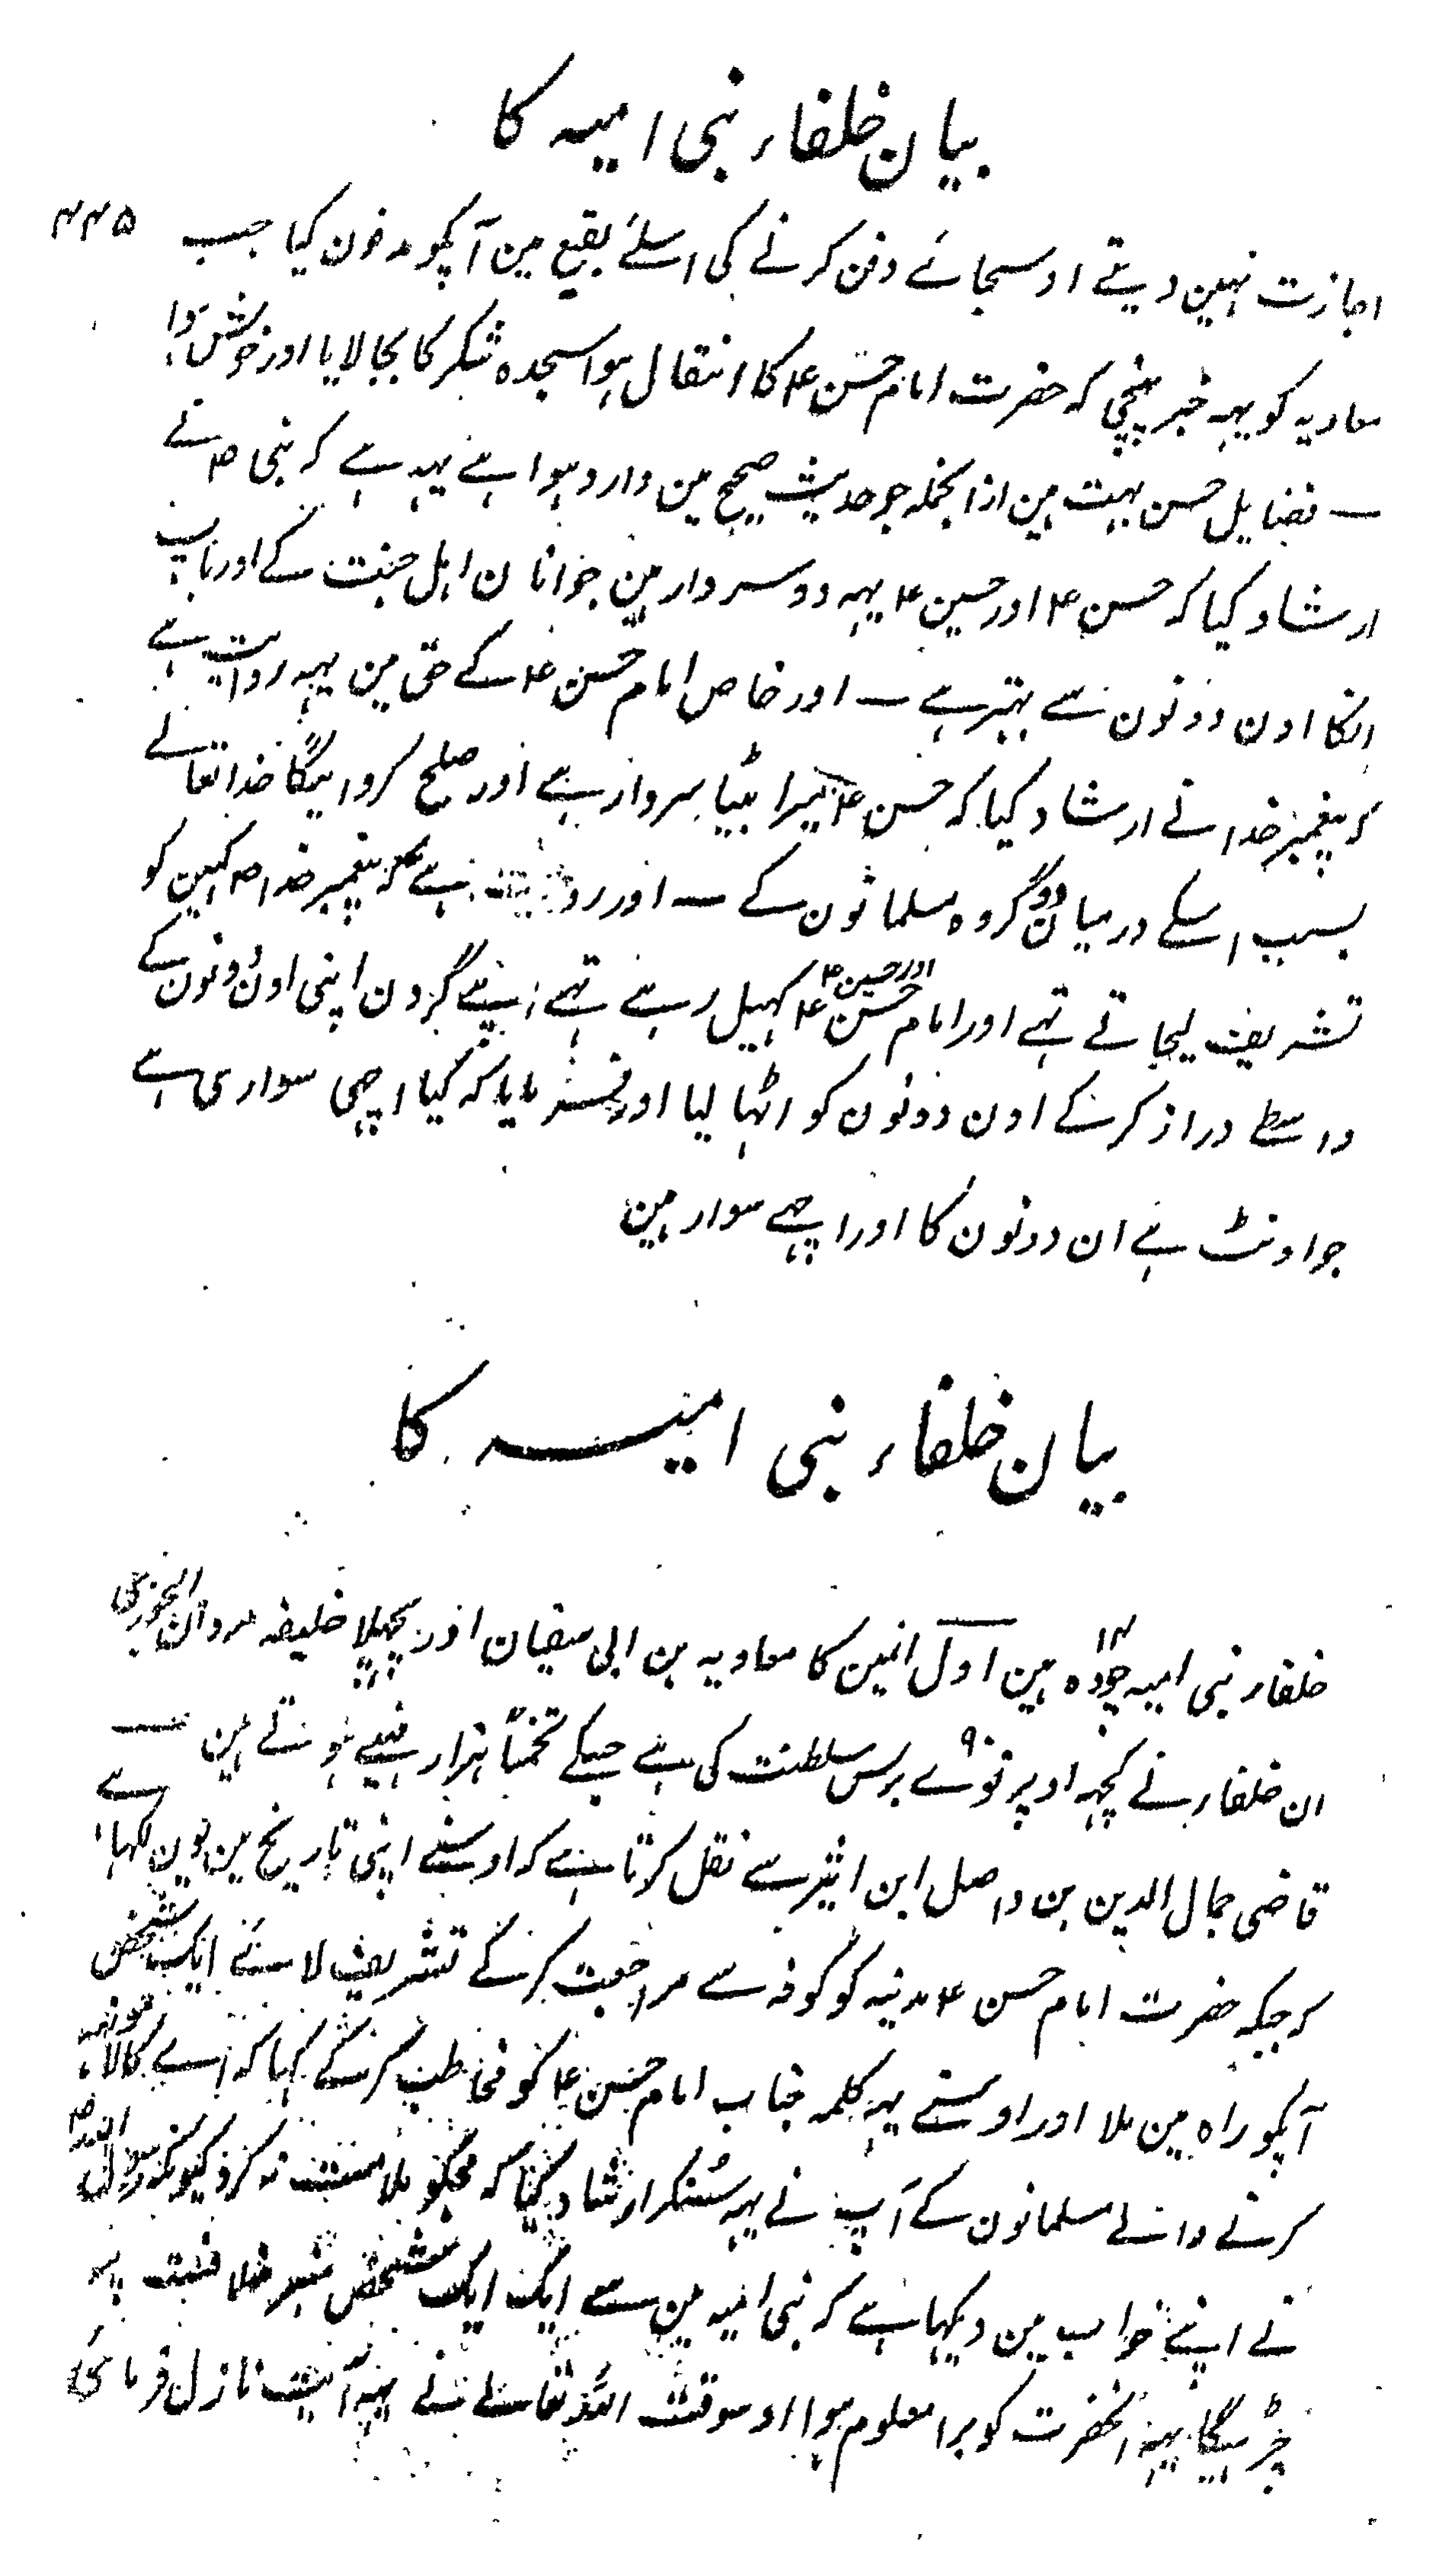 بیان خلفاء بنی امیہ کا
۴۴۵
اجازت نہین دیتے اوسجائے دفن کرنے کی اسلئے بقیع مین آپکو مدفون کیا جب
معاویہ کو یہہ خبر پہنچی کہ حضرت امام حسن ۴ کا انتقال ہوا سجدہ شکر کا بجا لایا اور خوش ہوا
— فضایل حسن بہت ہین ازانجملہ جو حدیث صحیح مین وارد ہوا ہے یہہ ہے کہ نبی ص نے
ارشاد کیا کہ حسن ۴ اور حسین ۴ یہہ دو سردار ہین جوانان اہل جنت کے اور باپ
انکا اون دونون سے بہتر ہے — اور خاص امام حسن ۴ کے حق مین یہہ روایت ہے
کہ پیغمبر خدا نے ارشاد کیا کہ حسن ۴ میرا بیٹا سردار ہے اور صلح کروائیگا خدا تعالے
بسبب اسکے درمیان دو گروہ مسلمانون کے — اور روایت ہے کہ پیغمبر خدا ص کہین کو
تشریف لیجاتے تہے اور امام حسن ۴ اور حسین ۴ کہیل رہے تہے اپنے گردن اپنی اون دونون کے
واسطے دراز کرکے اون دونون کو اٹہا لیا اور فرمایا کہ کیا اچھی سواری ہے
جو اونٹ ہے ان دونون کا اور اچہے سوار ہین
بیان خلفاء بنی امیہ کا
خلفاء بنی امیہ چودہ ۱۴ ہین اول انمین کا معاویہ بن ابی سفیان اور پچھلا خلیفہ مروان الجعدی
ان خلفاء نے کچہہ اوپر نوے ۹۰ برس سلطنت کی ہے جسکے تخمیناً ہزار مہینے ہوتے ہین —
قاضی جمال الدین بن واصل ابن اثیر سے نقل کرتا ہے کہ اوسنے اپنی تاریخ مین یون لکہا ہے
کہ جبکہ حضرت امام حسن ۴ مدینہ کو کوفہ سے مراجعت کرکے تشریف لائے ایک شخص
آپکو راہ مین ملا اور اوسنے یہہ کلمہ جناب امام حسن ۴ کو مخاطب کرکے کہا کہ اے کالا مونہہ
کرنے والے مسلمانون کے آپ نے یہہ سنکر ارشاد کیا کہ مجکو ملامت نہ کرو کیونکہ رسول اللہ ص
نے اپنے خواب مین دیکہا ہے کہ بنی امیہ مین سے ایک ایک شخص منبر خلافت پر
چڑہیگا یہہ آنحضرت کو برا معلوم ہوا اوسوقت اللہ تعالے نے یہہ آیت نازل فرمائی